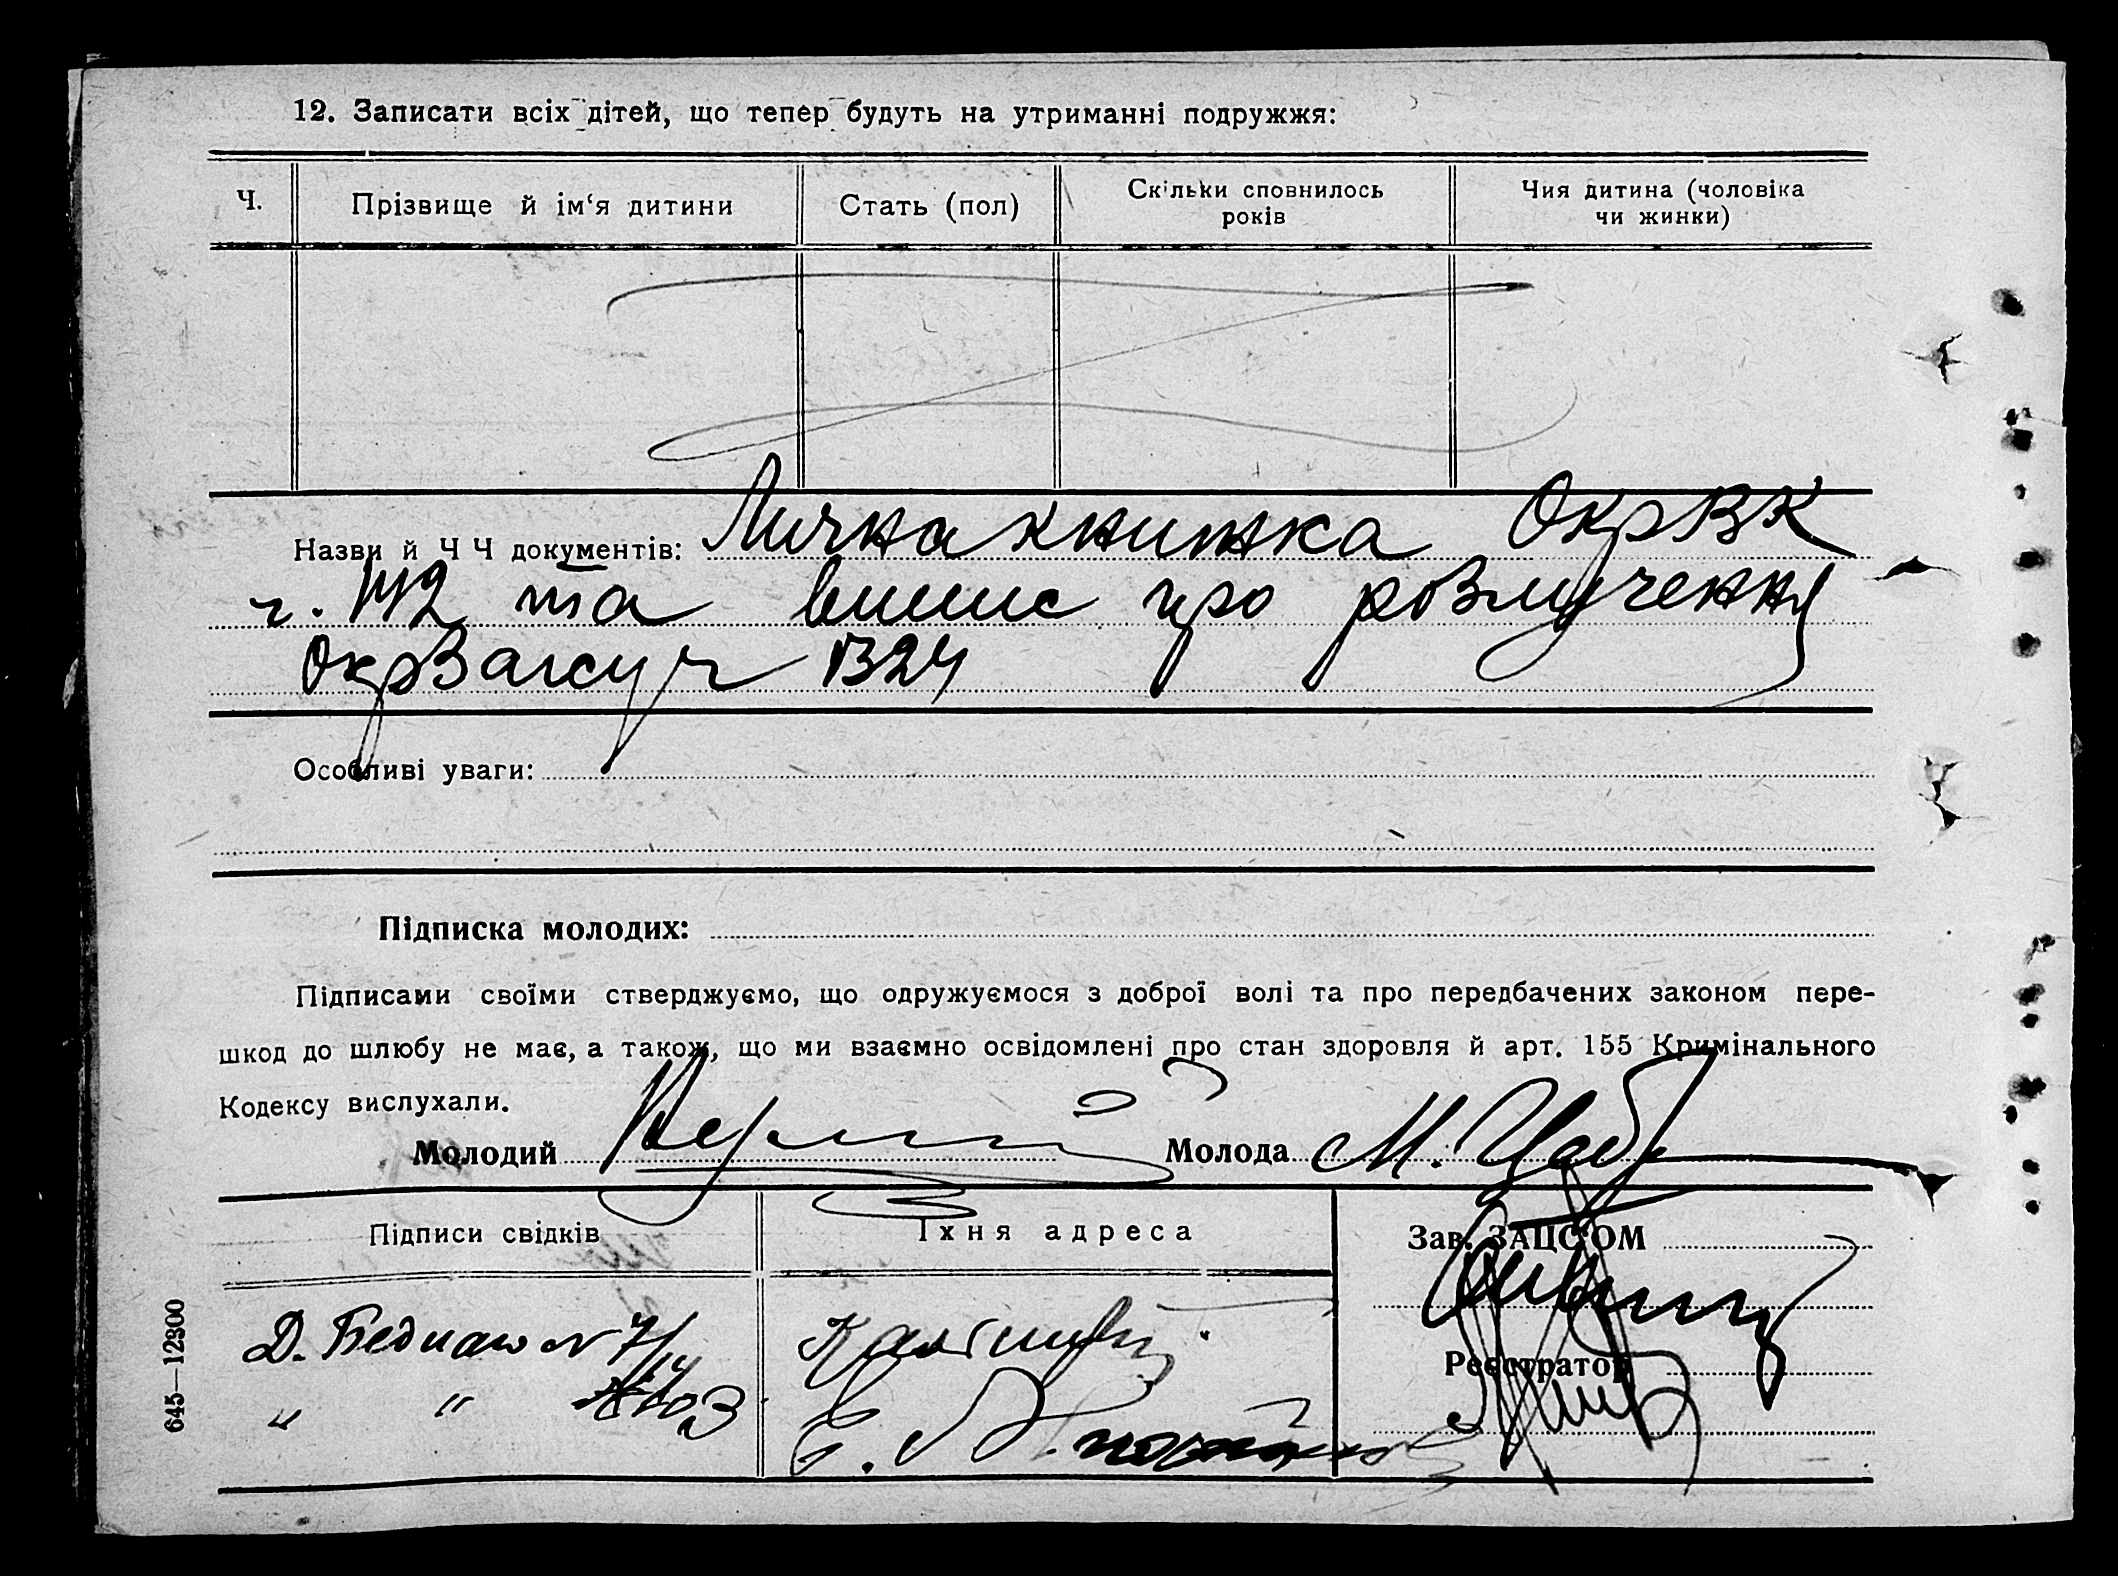 12. Записати всіх дітей, що тепер будуть на утриманні подружжя:
Ч.
Прізвище й ім‘я дитини
Стать (пол)
Скільки сповнилось
років
Чия дитина (чоловіка
чи жинки)
Назви й Ч Ч документів: Лична книжка ОкрВК
ч. 1112 та випис про розлучення
ОкрЗагсу ч 1324
Особливі уваги:
Підписка молодих:
Підписами своїми стверджуємо, що одружуємося з доброї волі та про передбачених законом пере-
шкод до шлюбу не має, а також, що ми взаємно освідомлені про стан здоровля й арт. 155 Кримінального
Кодексу вислухали.
Молодий
Молода М.
Підписи свідків
Їхня адреса
Зав. ЗАЦС‘ОМ
Реєстратор
Д. Бедного N 7/
„ „
645—12300